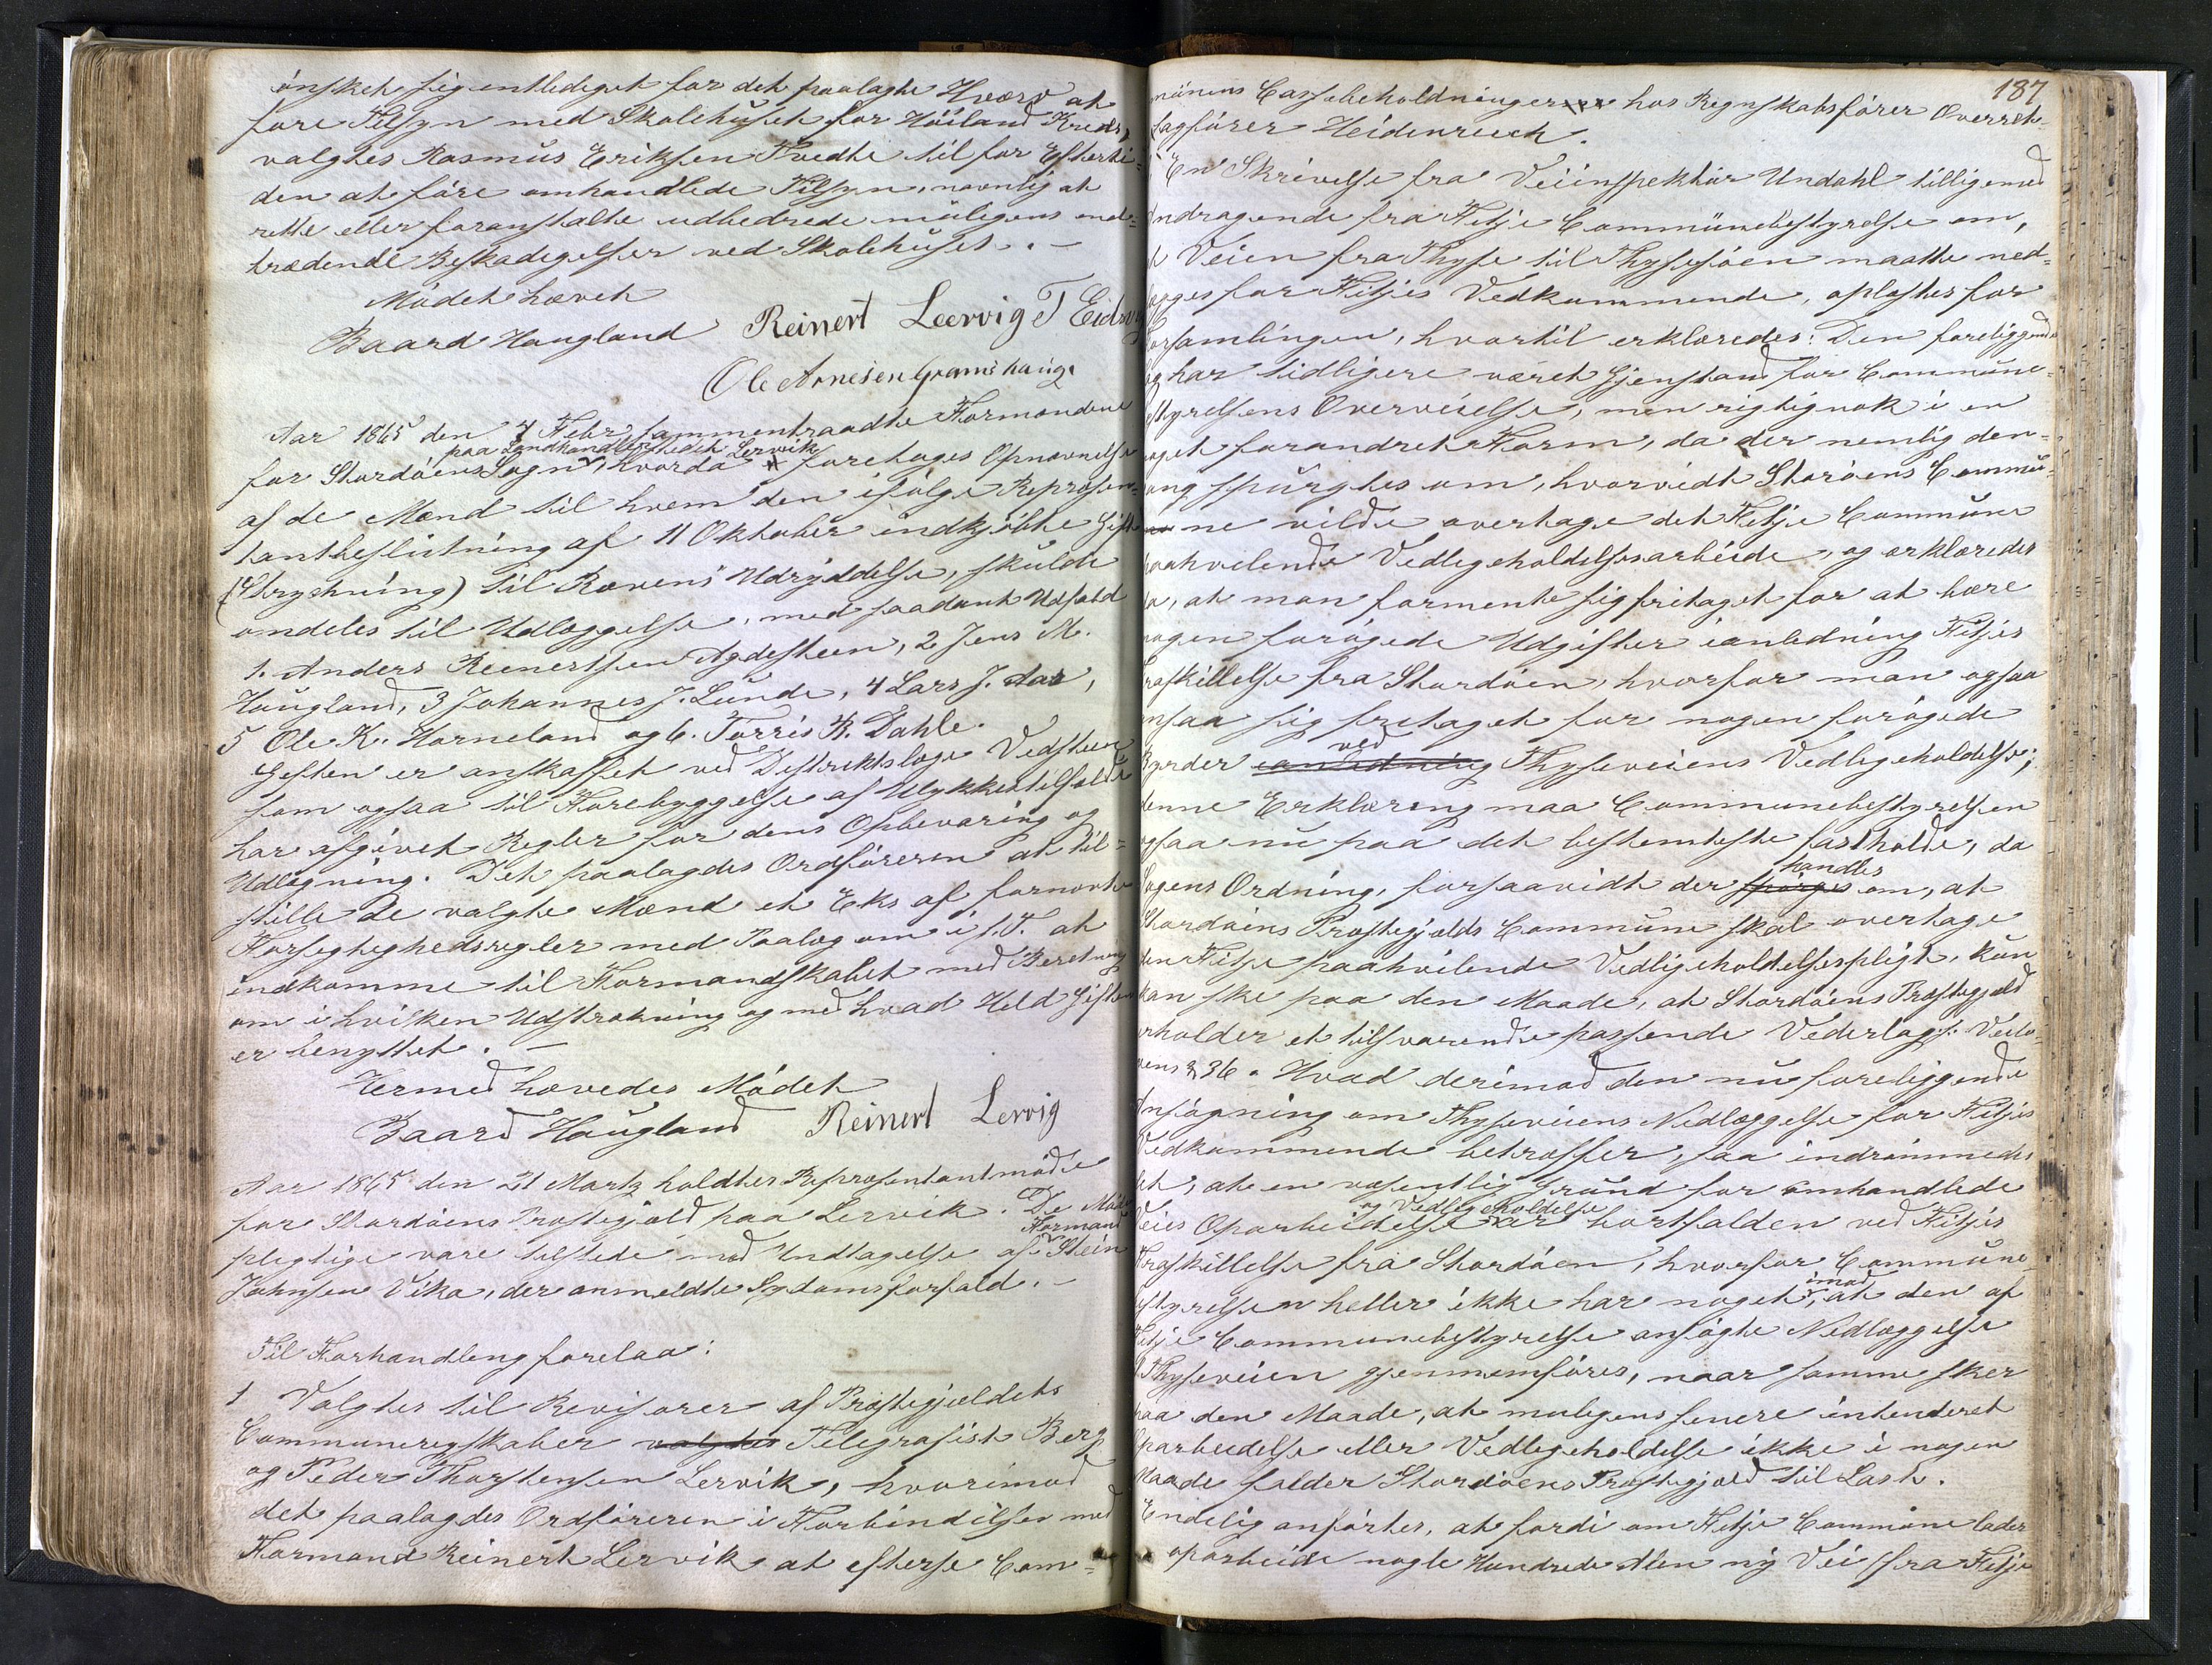 ønsket sig entlediget for det paalagte Hværv at
føre Tilsyn med Skolehuset for Høiland Kreds,
valgtes Rasmus Eriksen Tvedte til for Efterti-
den at føre omhandlede Tilsyn, navnlig at
rette eller foranstalte udbedrede muligens ind-
trædende Beskadigelser ved Skolehuset. –
Mødet hævet
Baard Haugland Reinert Leervig T Eidsvig
Ole Arnesen Gramshaug.
Aar 1865 den 4 Febr sammentraadte Formændene
paa Landhandlerstedet Lervik
for Stordøens Sogn, hvorda foretoges Opnævnelse
af de Mænd til hvem den ifølge Repræsen-
tantbeslutning af 11 Oktober indkjøbte Gift
(Strychning) til Rævens Udryddelse, skulde
uddeles til Udlæggelse, med saadant Udfald
1. Anders Reinertsen Agdesteen, 2 Jens M.
Haugland, 3 Johannes J. Lunde, 4 Lars J. Aas,
5 Ole K. Horneland og 6. Torris H. Dahle.
Giften er anskaffet ved Distriktslæge Vedsteen
som ogsaa til Forebyggelse af Ulykkestilfælde
har afgivet Regler for dens Opbevaring og
Udlægning. Det paalagdes Ordføreren at til-
stille de valgte Mænd et Eks af fornævnte
Forsigtighedsregler med Paalæg om i s. T. at
indkomme til Formandskabet med Beretning
om i hvilken Udstrækning og med hvad Held Giften
er benyttet. –
Hermed hævedes Mødet
Baard Haugland Reinert Lervig
Aar 1865 den 21 Marts holdtes Repræsentantmøde
for Stordøens Præstegjæld paa Lervik. De Møde-
Formand
pligtige vare tilstede med Undtagelse af Stein
Johnsen Vika, der anmeldte Sygdomsforfald. –
Til Forhandling forelaa:
1 Valgtes til Revisorer af Præstegjældets
Communeregskaber valgtes Telegrafist Berg
og Peder Thorstensen Lervik, hvorimod
det paalagdes Ordføreren i Forbindelse med
Formand Reinert Lervik at efterse Com-
187
munens Cassebeholdninger hos Regnskabsfører Overrets-
sagfører Heidenreich.
En Skrivelse fra Veiinspektør Undahl tilligemed
Andragende fra Fitje Communebestyrelse om,
at Veien fra Thyse til Thysesøen maatte ned-
lægges for Fitjes Vedkommende, oplæstes for
Forsamlingen, hvortil erklæredes: Den foreliggende
Sag har tidligere været Gjenstand for Commune-
bestyrelsens Overveielse, men rigtignok i en
noget forandret Form, da der nemlig den-
gang spurgtes om, hvorvidt Storøens Commu-
ne vilde overtage det Fitje Commune
paahvilende Vedligeholdelsesarbeide, og erklæredes
da, at man formente sig fritaget for at bære
nogen forøgede Udgifter ianledning Fitjes
Fraskillelse fra Stordøen, hvorfor man ogsaa
ansaa sig fritaget for nogen forøgede
ved
Byrder ianledning Thyseveiens Vedligeholdelse;
denne Erklæring maa Communebestyrelsen
ogsaa nu paa det bestemteste fastholde, da
handles
Sagens Ordning, forsaavidt der spørges om, at
Stordøens Præstegjælds Commune skal overtage
den Fitje paahvilende Vedligeholdelsespligt, kun
kan ske paa den Maade, at Stordøens Præstegjæld
erholder et tilsvarende passende Vederlag jf. Veilo-
vens § 36. Hvad derimod den nu foreliggende
Ansøgning om Thyseveiens Nedlæggelse for Fitjes
Vedkommende betræffer, saa indrømmedes
det, at en væsentlig Grund for omhandlede
og Vedligeholdelse
Veies Oparbeidelse er bortfalden ved Fitjes
Fraskillelse fra Stordøen, hvorfor Commune-
imod
bestyrelsen heller ikke har noget, at den af
Fitje Communebestyrelse ansøgte Nedlæggelse
af Thyseveien gjennemføres, naar samme sker
paa den Maade, at muligens senere intenderet
Oparbeidelse eller Vedligeholdelse ikke i nogen
Maade falder Stordøens Præstegjæld til Last.
Endelig anførtes, at fordi om Fitje Commune lader
oparbeide nogle Hundrede Alen ny Vei fra Fitje